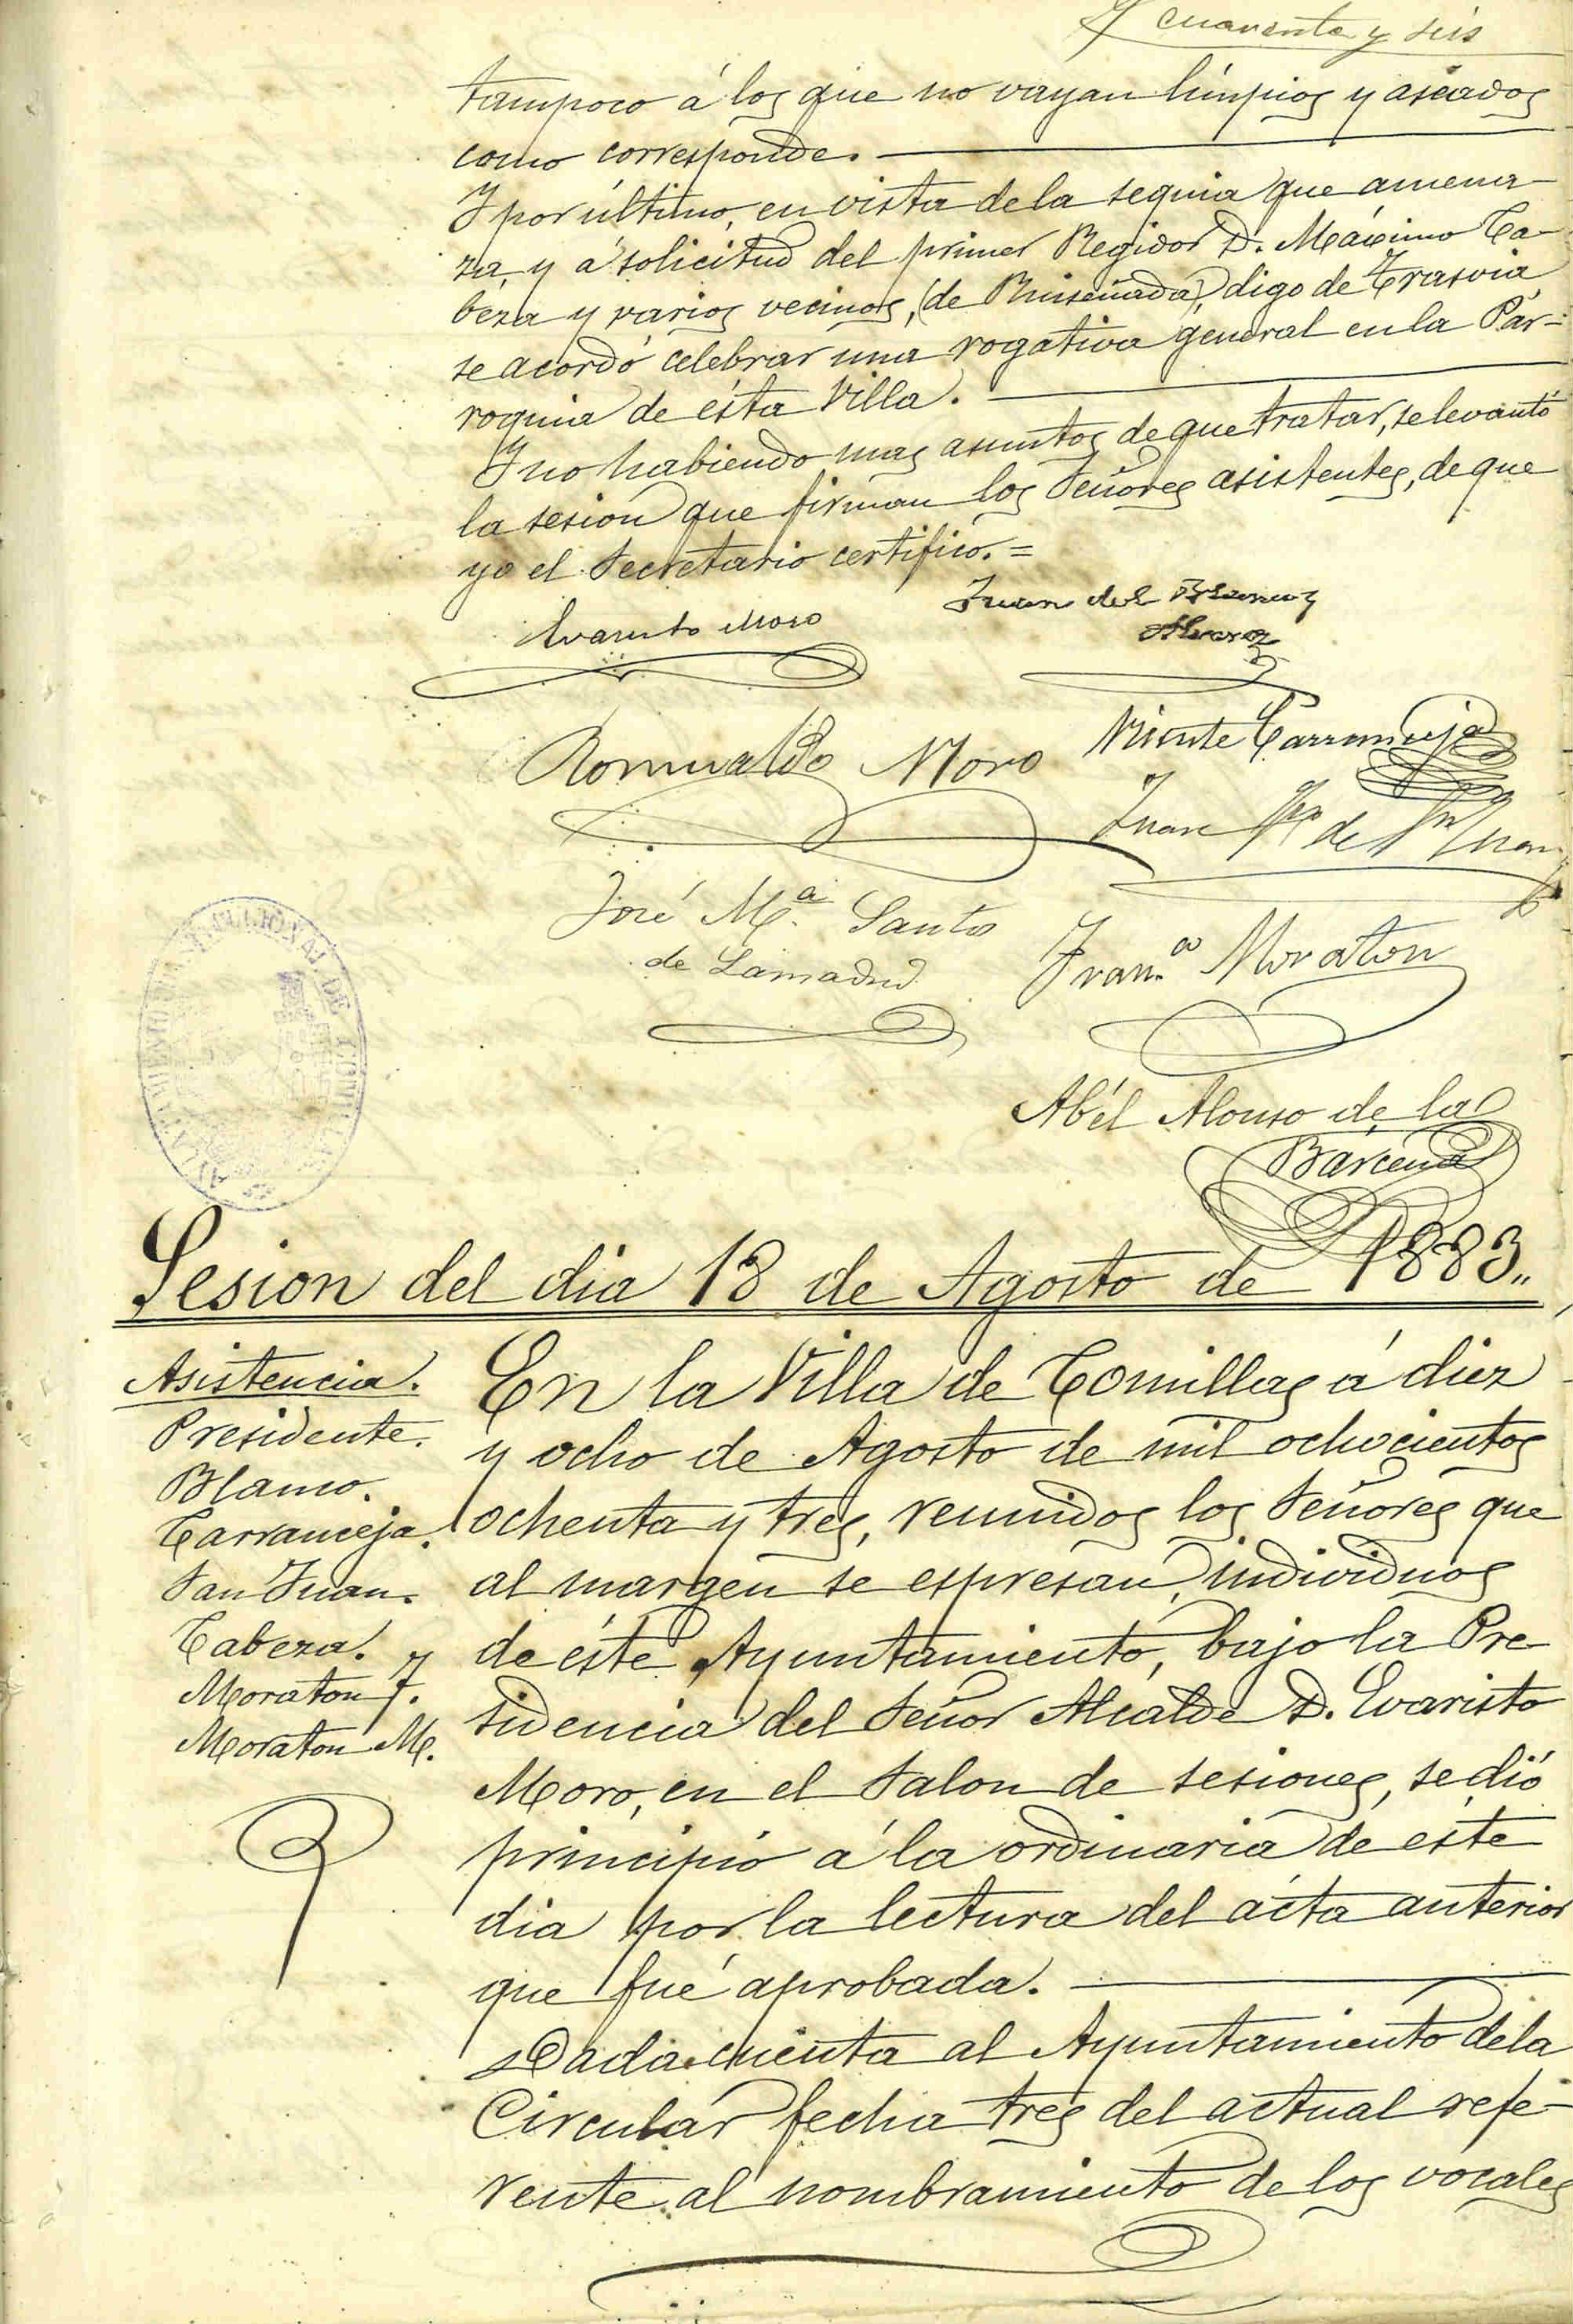 cuarenta y seis
tampoco á los que no vayan límpios y aseados
como corresponde.
Y por último, en vista de la sequia que amena-
za, y á solicitud del primer Regidor D. Máximo Ca-
beza y varios vecinos, (de Ruiseñada), digo de Trasvia,
se acordó celebrar una rogativa general en la Pár-
roquia de ésta Villa.
Y no habiendo mas asuntos de que tratar, se levantó
la sesion que firman los Señores asistentes, de que
yo el Secretario certifico. =
Evaristo Moro
Juan del Blanco y
Alvarez
Romualdo Moro
Vicente Carranceja
Juan de Sn Juan
José Mª. Santos
de Lamadrid
Fran.co Moraton
Abél Alonso de la
Bárcena
AYUNTAMIENTO CONSTITUCIONAL DE COMILLAS
Sesion del dia 18 de Agosto de 1883.,,
Asistencia.
Presidente.
Blanco.
Carranceja.
San Juan.
Cabeza.
Moraton F.
Moraton M.
En la Villa de Comillas á diez
y ocho de Agosto de mil ochocientos
ochenta y tres, reunidos los Señores que
al margen se espresan, individuos
de éste Ayuntamiento, bajo la Pre-
sidencia del Señor Alcalde D. Evaristo
Moro, en el Salon de sesiones, se dió
principio á la ordinaria de éste
dia por la lectura del ácta anterior
que fué aprobada.
Dada cuenta al Ayuntamiento de la
Circular fecha tres del actual refe-
rente al nombramiento de los vocales